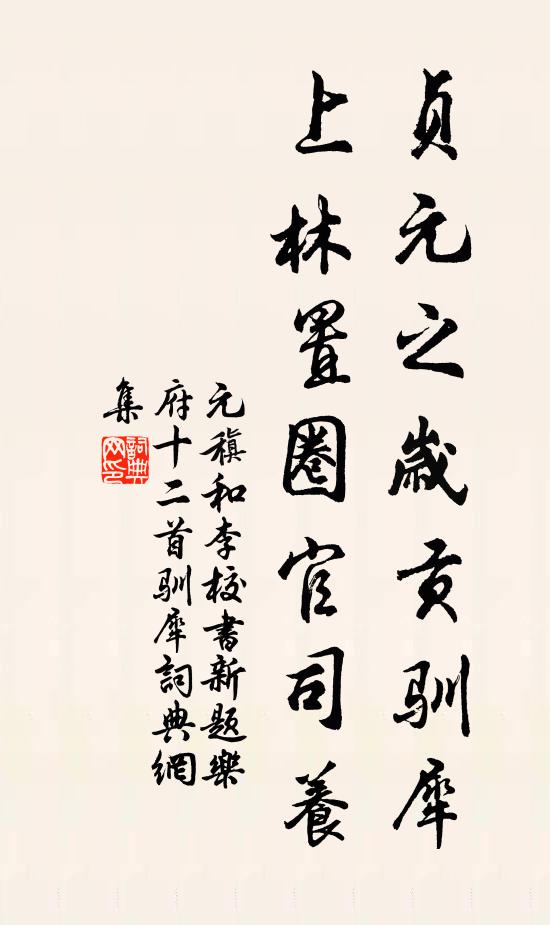 貞元之歲貢馴犀
上林置圈官司養
元稹和李校書新題樂
府十二首馴犀詞典網
集
詞典
网印